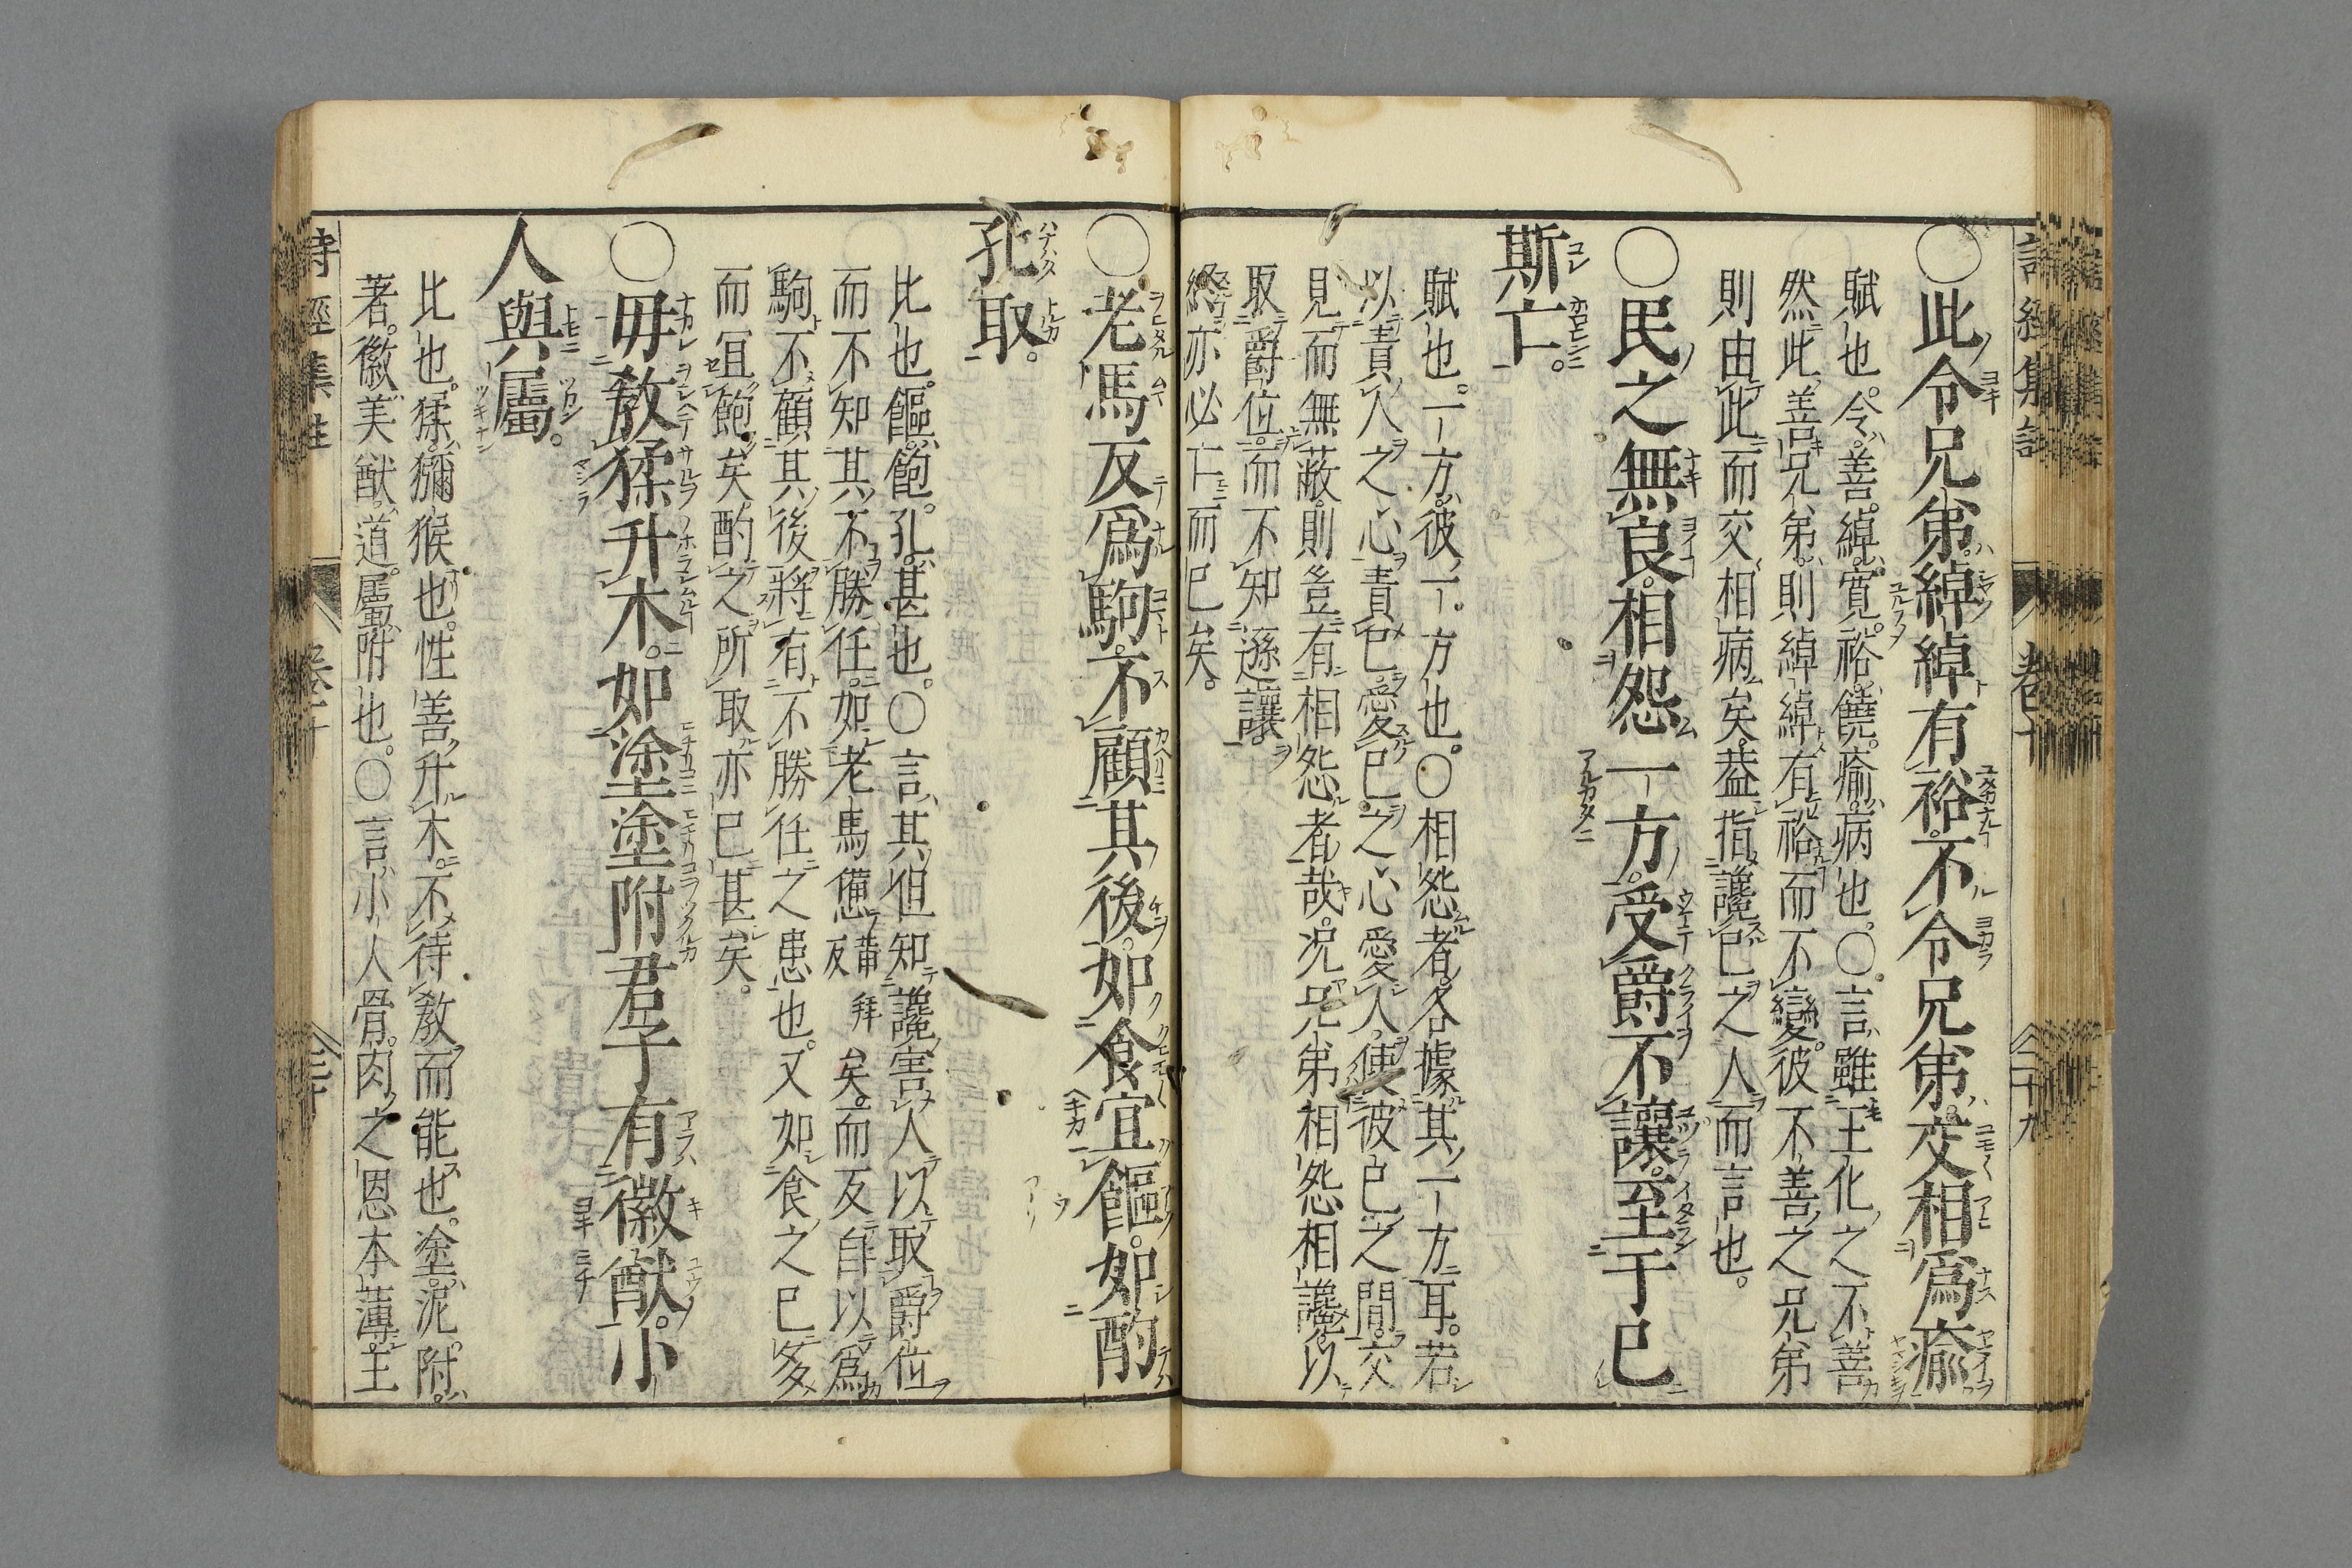 ○此令兄弟。綽綽有裕。不令兄弟。交相爲瘉
賦也。令。善。綽。寬。裕。饒。瘉。病也。○言雖王化之不善
然此善兄弟。則綽綽有裕而不變。彼不善之兄弟
則由此而交相病矣。葢指讒己之人而言也。
○民之無良。相怨一方。受爵不讓。至于已
斯亡。
賦也。一方。彼一方也。○相怨者。各據其一方耳。若
以責人之心責已。愛已之心愛人。使彼已之間。交
見而無蔽。則豈有相怨者哉。况兄弟相怨相讒。以
取爵位。而不知遜讓。
終亦必亡而已矣。
○老馬反爲駒。不顧其後。如食宜饇。如酌
孔取。
比也。饇。飽。孔。甚也。○言其但知讒害人以取爵位
而不知其不勝任。如老馬憊蒲拜反矣。而反自以爲
駒。不顧其後。將有不勝任之患也。又如食之已多
而宜飽矣。酌之所取亦已甚矣。
○毋敎猱升木。如塗塗附。君子有徽猷。小
人與屬。
比也。猱。獼猴也。性善升木。不待敎而能也。塗。泥。附。
著。徽。美。猷。道。屬。附也。○言小人骨肉之恩本薄。王
詩經集註
卷十
三十
卷十
二十九